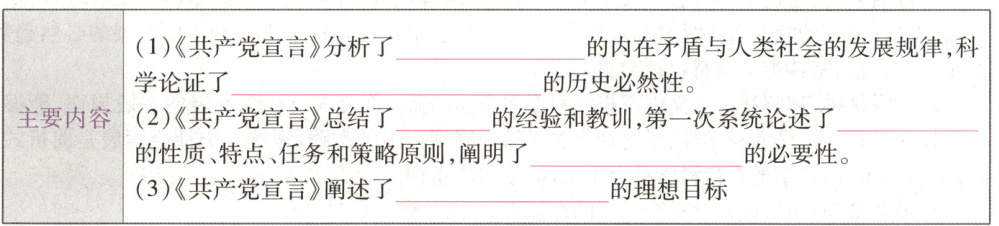 (1)《共产党宣言》分析了____________的内在矛盾与人类社会的发展规律,科
学论证了____________________的历史必然性。
主要内容
(2)《共产党宣言》总结了______的经验和教训,第一次系统论述了_________
的性质、特点、任务和策略原则,阐明了______________的必要性。
(3)《共产党宣言》阐述了______________的理想目标